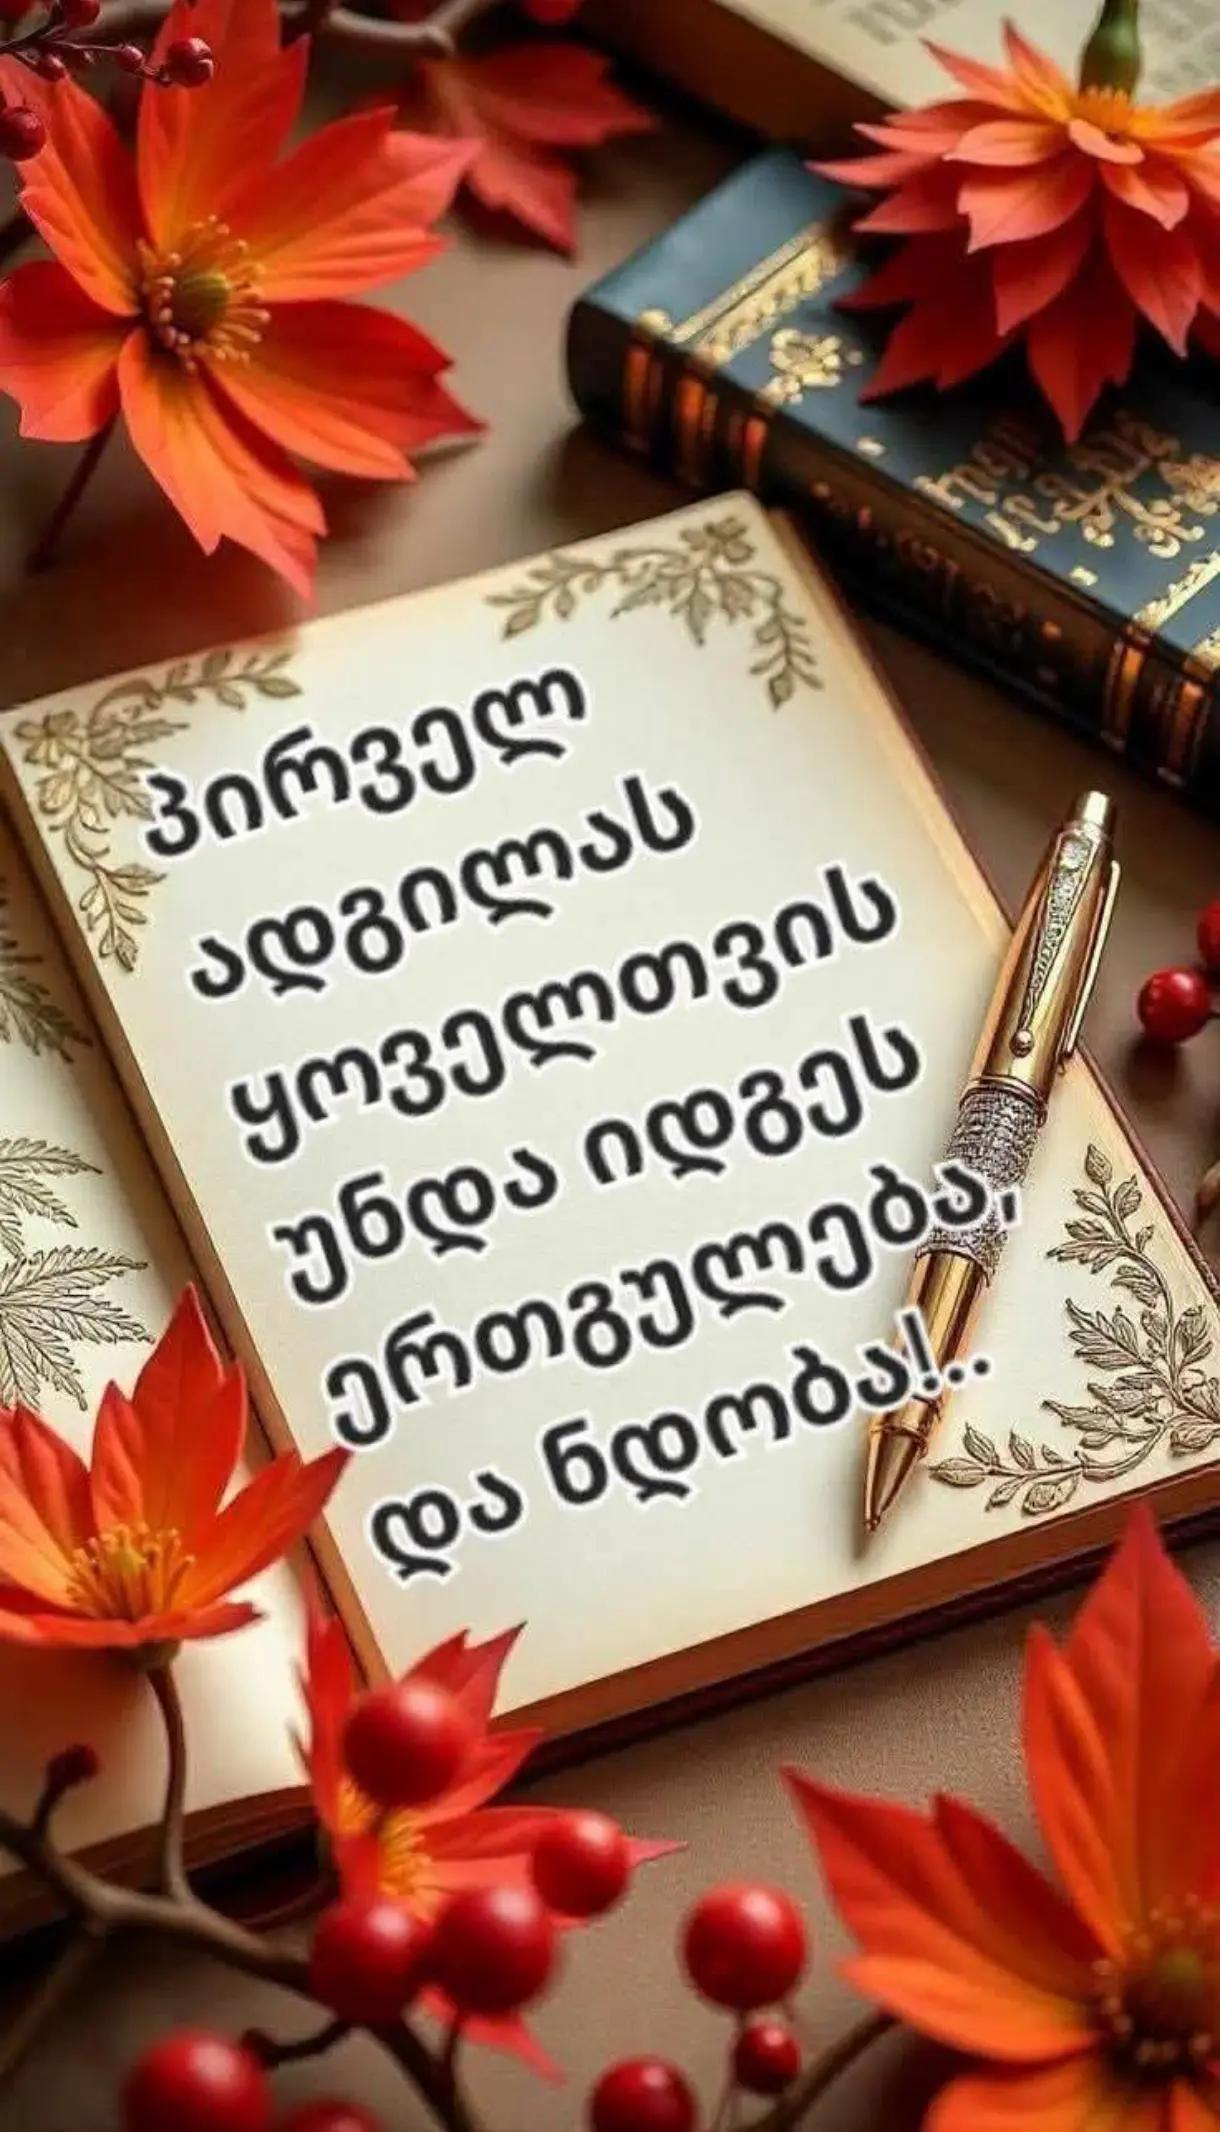 პირველ
ადგილას
ყოველთვის
უნდა იდგეს
ერთგულება,
და ნდობა!..